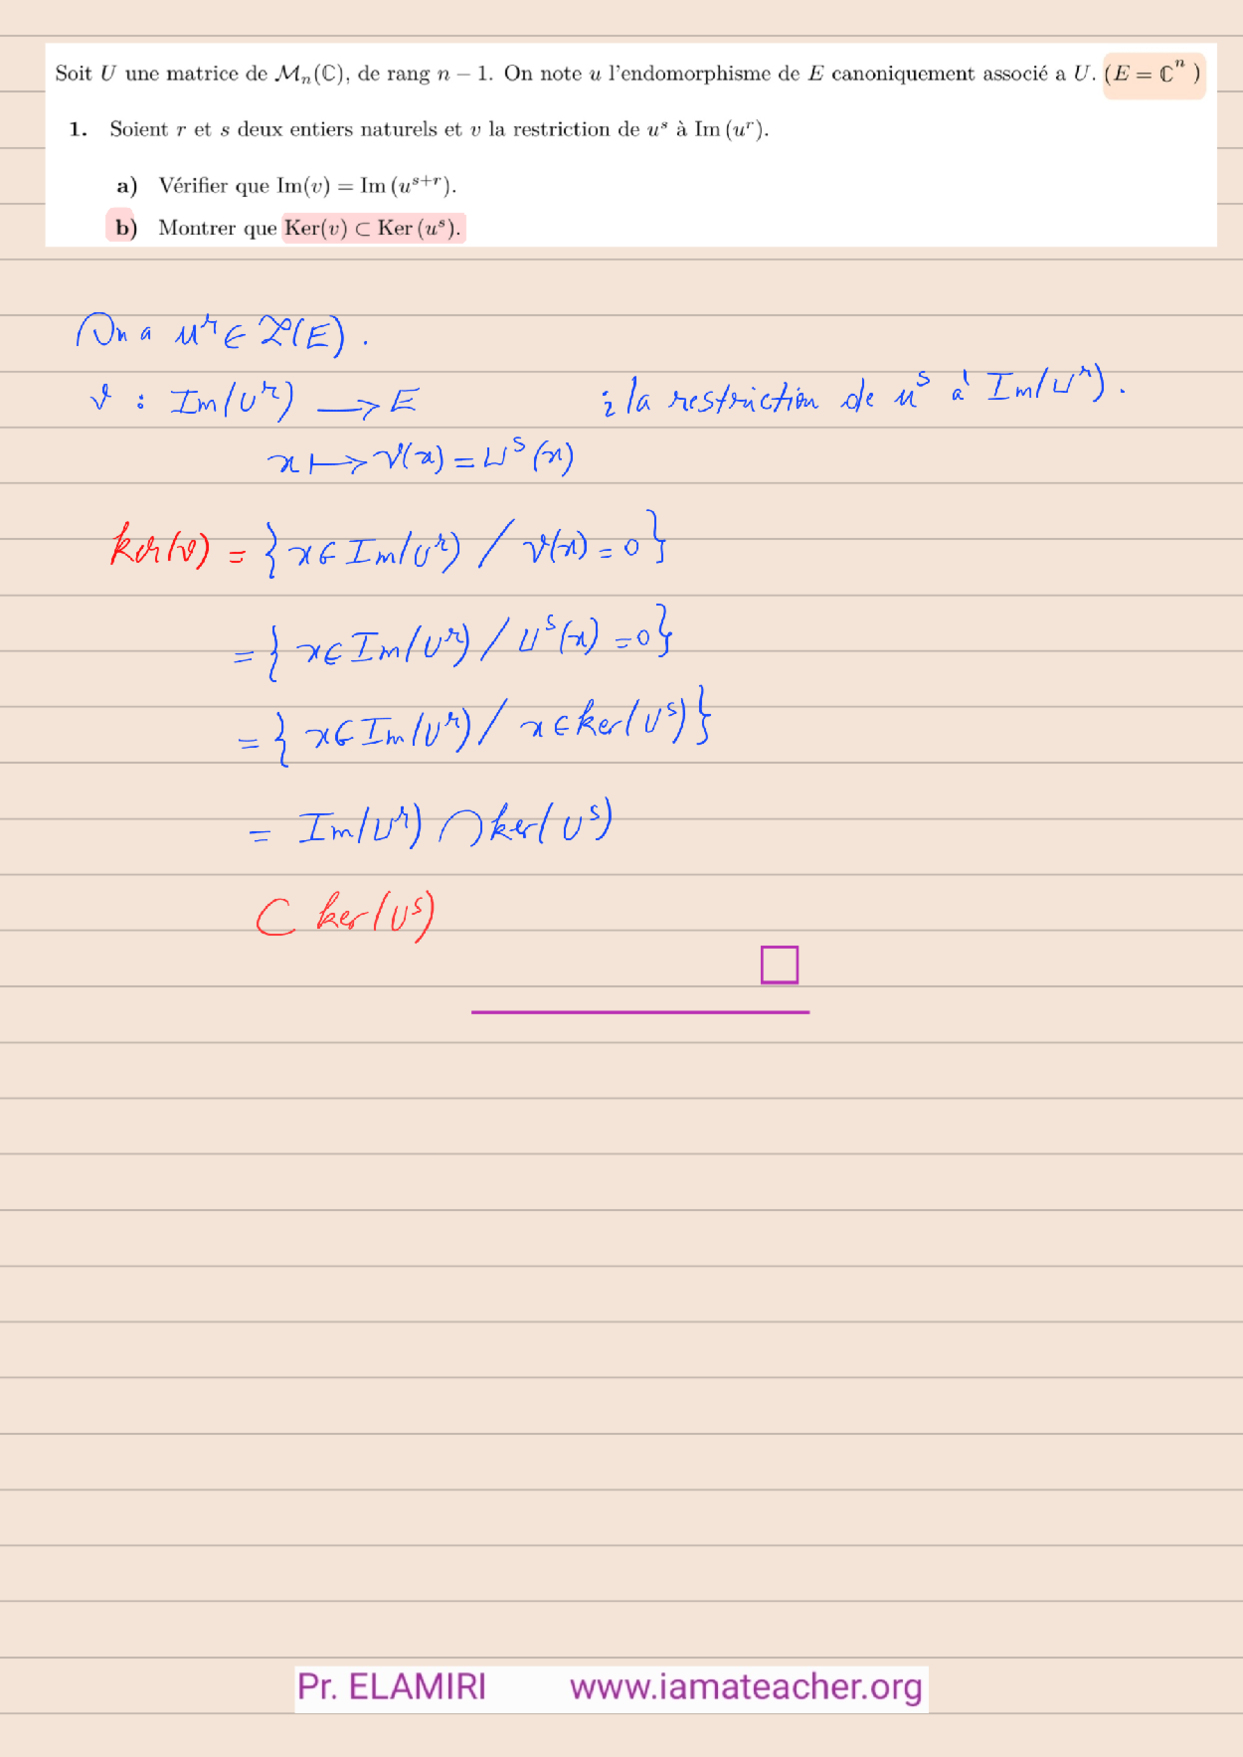 Soit U une matrice de ℳₙ(ℂ), de rang n − 1. On note u l'endomorphisme de E canoniquement associé a U. (E = ℂⁿ )
1. Soient r et s deux entiers naturels et v la restriction de uˢ à Im (uʳ).
a) Vérifier que Im(v) = Im (uˢ⁺ʳ).
b) Montrer que Ker(v) ⊂ Ker (uˢ).
On a uʳ ∈ ℒ(E).
v : Im(uʳ) ⟶ E ; la restriction de uˢ à Im(uʳ).
x ⟼ v(x) = uˢ(x)
ker(v) = { x ∈ Im(uʳ) / v(x) = 0 }
= { x ∈ Im(uʳ) / uˢ(x) = 0 }
= { x ∈ Im(uʳ) / x ∈ ker(uˢ) }
= Im(uʳ) ∩ ker(uˢ)
⊂ ker(uˢ)
□
Pr. ELAMIRI www.iamateacher.org